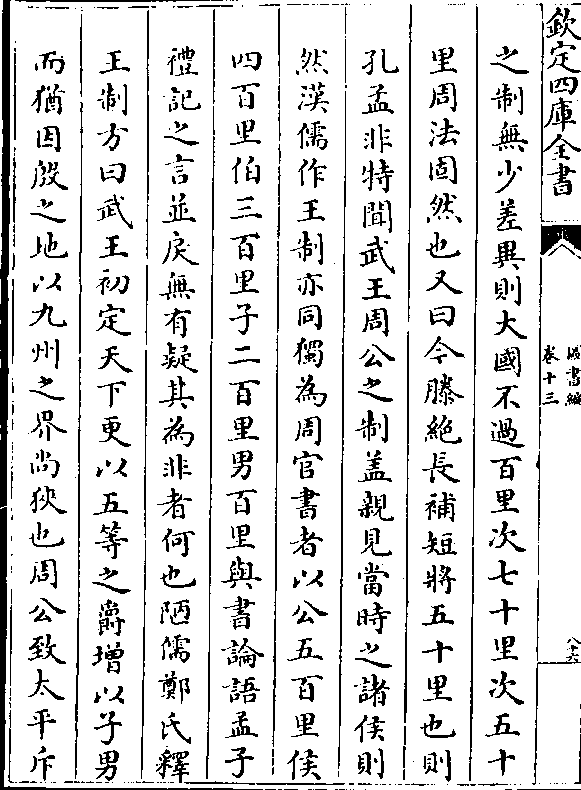 欽定四庫全書
圖書編
卷十三
之制無少差異則大國不過百里次七十里次五十
里周法固然也又曰今滕絶長補短將五十里也則
孔孟非特聞武王周公之制盖親見當時之諸侯則
然漢儒作王制亦同獨為周官書者以公五百里侯
四百里伯三百里子二百里男百里與書論語孟子
禮記之言並戾無有疑其為非者何也陋儒鄭氏釋
王制方曰武王初定天下更以五等之爵增以子男
而猶因殷之地以九州之界尚狹也周公致太平斥